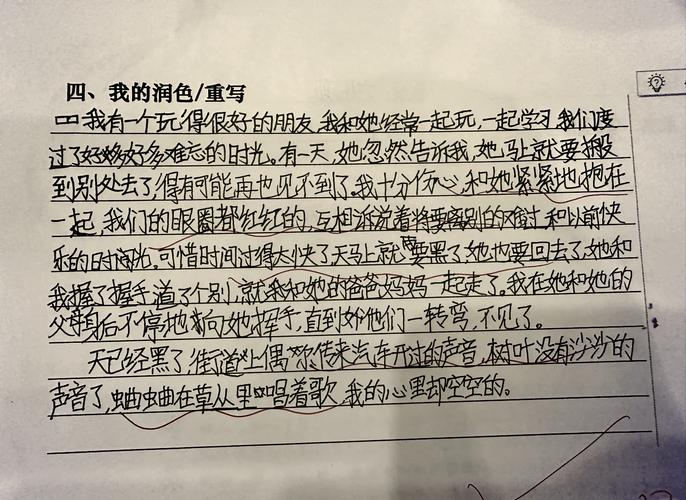 四、我的润色/重写
我有一个玩得很好的朋友,我和她经常一起玩,一起学习,我们度
过了好多好多难忘的时光。有一天,她忽然告诉我,她马上就要搬
到别处去了,得有可能再也见不到了。我十分伤心,和她紧紧地抱在
一起,我们的眼圈都红红的,互相诉说着将要离别的难过,和以前快
乐的日时光。可惜时间过得太快了天马上就要黑了,她也要回去了,她和
我握了握手,道了个别,就和她的爸爸妈妈一起走了。我在她和她的
父母身后不停地向她挥手,直到她他们一转弯,不见了。
天已经黑了,街道上偶尔传来汽车开过的声音,树叶没有沙沙的
声音了,蛐蛐在草丛里唱着歌,我的心里却空空的。